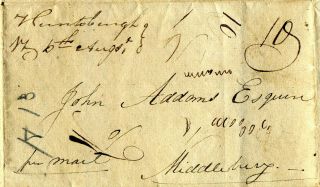 Huntsburgh
Vt 6th Augst
10
10
John Addoms Esquire
pr mail
Middlebury